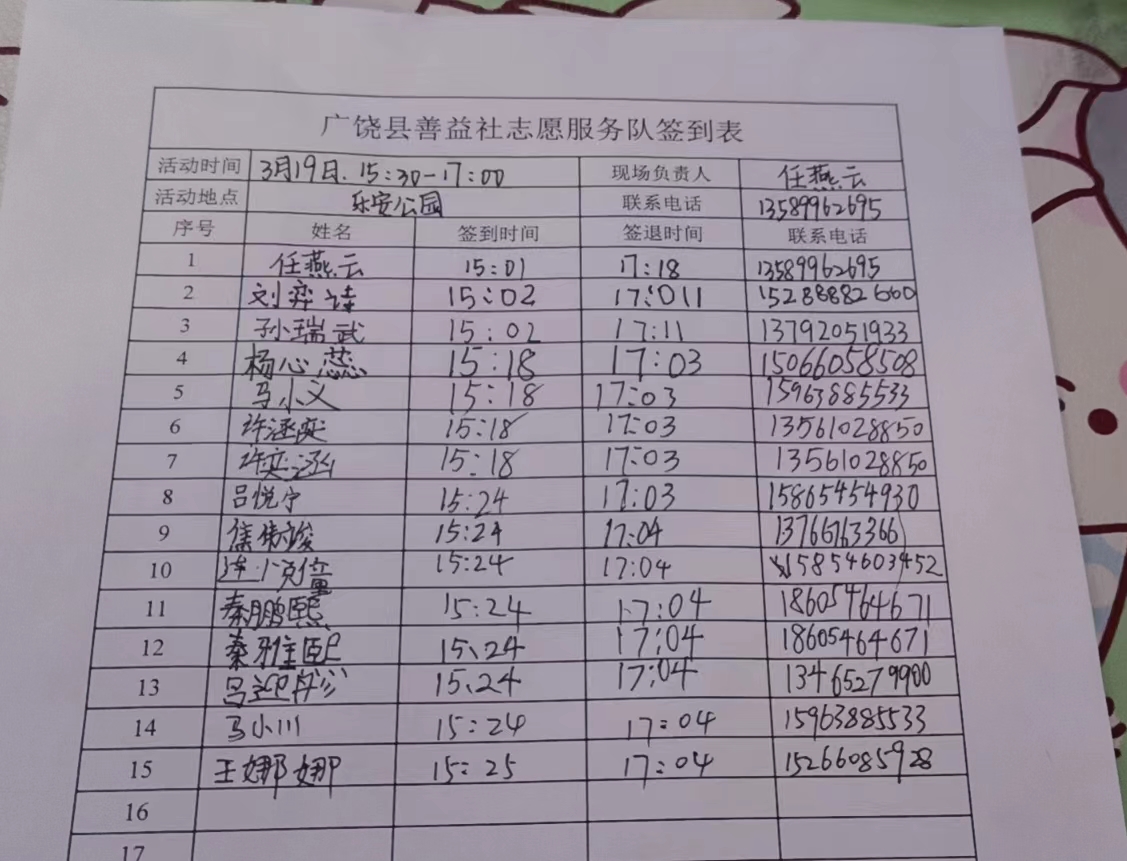 广饶县善益社志愿服务队签到表
活动时间 3月19日.15:30-17:00 现场负责人 任燕云
活动地点 乐安公园 联系电话 13589962695
序号 姓名 签到时间 签退时间 联系电话
1 任燕云 15:01 17:18 13589962695
2 刘弈 15:02 17:011 15288882660
3 孙瑞武 15:02 17:11 13792051933
4 杨心蕊 15:18 17:03 15066058508
5 马小义 15:18 17:03 15963885533
6 许涵奕 15:18 17:03 13561028850
7 许奕涵 15:18 17:03 13561028850
8 吕悦宁 15:24 17:03 15865454930
9 焦 15:24 17:04 13766763366
10 15:24 17:04 15854603452
11 秦鹏熙 15:24 17:04 18605464671
12 秦雅熙 15:24 17:04 18605464671
13 15:24 17:04 13465279900
14 马小川 15:24 17:04 15963885533
15 王娜娜 15:25 17:04 15266085928
16
17